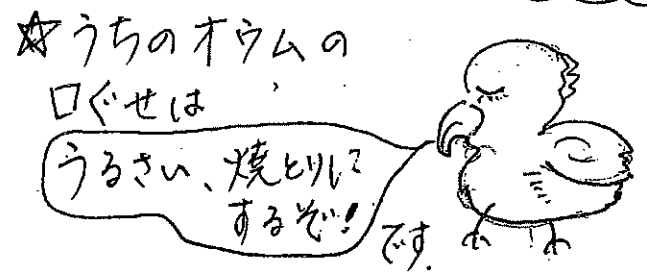 ☆うちのオウムの
口ぐせは
うるさい、焼とりに
するぞ!
です.